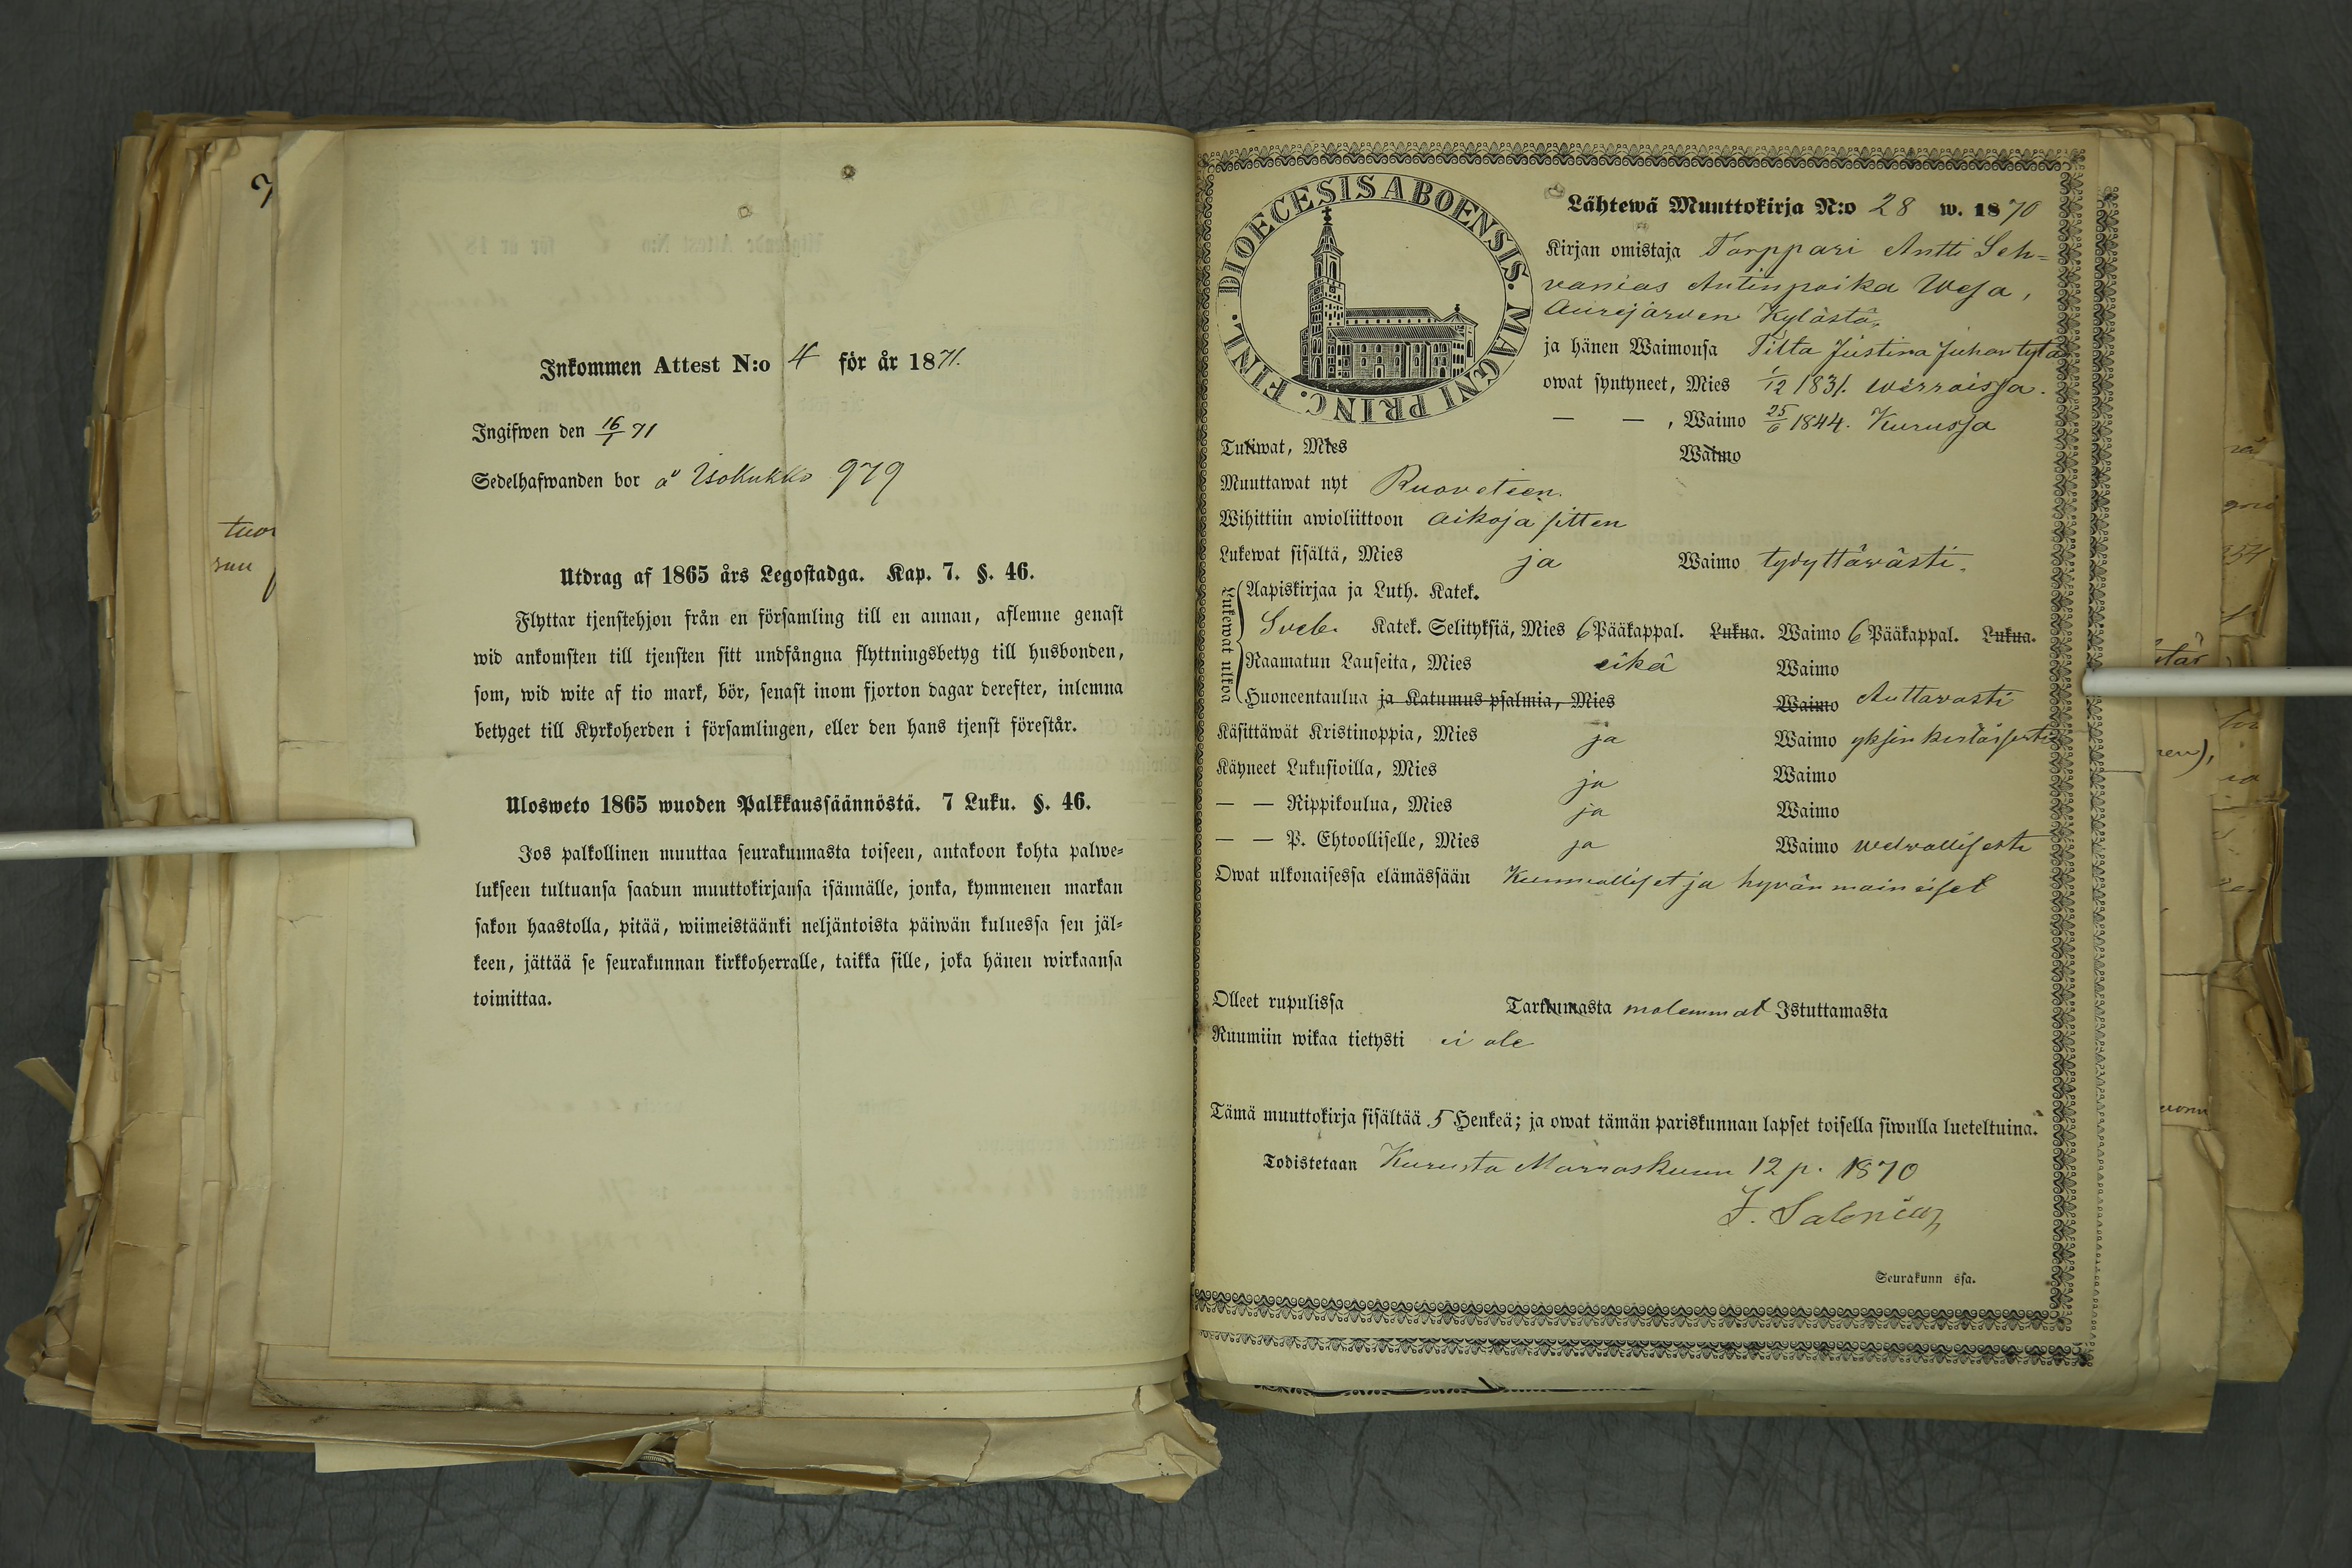 Inkommen Attest N:o 4 för år 1871.
Ingifwen den 16/1 71
Sedelhafwanden bor å Isokukko 979
Utdrag af 1865 års Legostadga. Kap. 7. §. 46.
Flyttar tjenstehjon från en församling till en annan, aflemne genast
wid ankomsten till tjensten sitt undfångna flyttningsbetyg till husbonden,
som, wid wite af tio mark, bör, senast inom fjorton dagar derefter, inlemna
betyget till Kyrkoherden i församlingen, eller den hans tjenst förestår.
Ulosweto 1865 wuoden Palkkaussäännöstä. 7 Luku. §. 46.
Jos palkollinen muuttaa seurakunnasta toiseen, antakoon kohta palwe-
lukseen tultuansa saadun muuttokirjansa isännälle, jonka, kymmenen markan
sakon haastolla, pitää, wiimeistäänki neljäntoista päiwän kuluessa sen jäl-
keen, jättää se seurakunnan kirkkoherralle, taikka sille, joka hänen wirkaansa
toimittaa.
DIOECESIS ABOENSIS. MAGNI PRINC. FINL.
Lähtewä Muuttokirja N:o 28 w. 1870
Kirjan omistaja Torppari Antti Seh=
vanias Antinpoika Wesa,
Aurejärven Kylästä,
ja hänen Waimonsa Tilta Justina Juhantytä
owat syntyneet, Mies 1/12 1831. Wirroissa.
— — , Waimo 25/6 1844. Kurussa
Tuliwat, Mies Waimo
Muuttawat nyt Ruoveteen.
Wihittiin awioliittoon aikoja sitten
Lukewat sisältä, Mies ja Waimo tydyttäwästi.
Lukewat ulkoa
Aapiskirjaa ja Luth. Katek.
Sveb. Katek. Selityksiä, Mies 6 Pääkappal. Lukua. Waimo 6 Pääkappal. Lukua.
Raamatun Lauseita, Mies eikä Waimo
Huoneentaulua ja Katumus psalmia, Mies Waimo Auttavasti
Käsittäwät Kristinoppia, Mies ja Waimo yksinkertaisesti
Käyneet Lukusioilla, Mies ja Waimo
— — Rippikoulua, Mies ja Waimo
— — P. Ehtoolliselle, Mies ja Waimo welwollisesti
Owat ulkonaisessa elämässään Kunnialliset ja hyvänmaineiset
Olleet rupulissa Tarttumasta molemmat Istuttamasta
Ruumiin wikaa tietysti ei ole
Tämä muuttokirja sisältää 5 Henkeä; ja owat tämän pariskunnan lapset toisella siwulla lueteltuina.
Todistetaan Kurusta Marraskuun 12 p. 1870
F. Salonius
Seurakunn ssa.